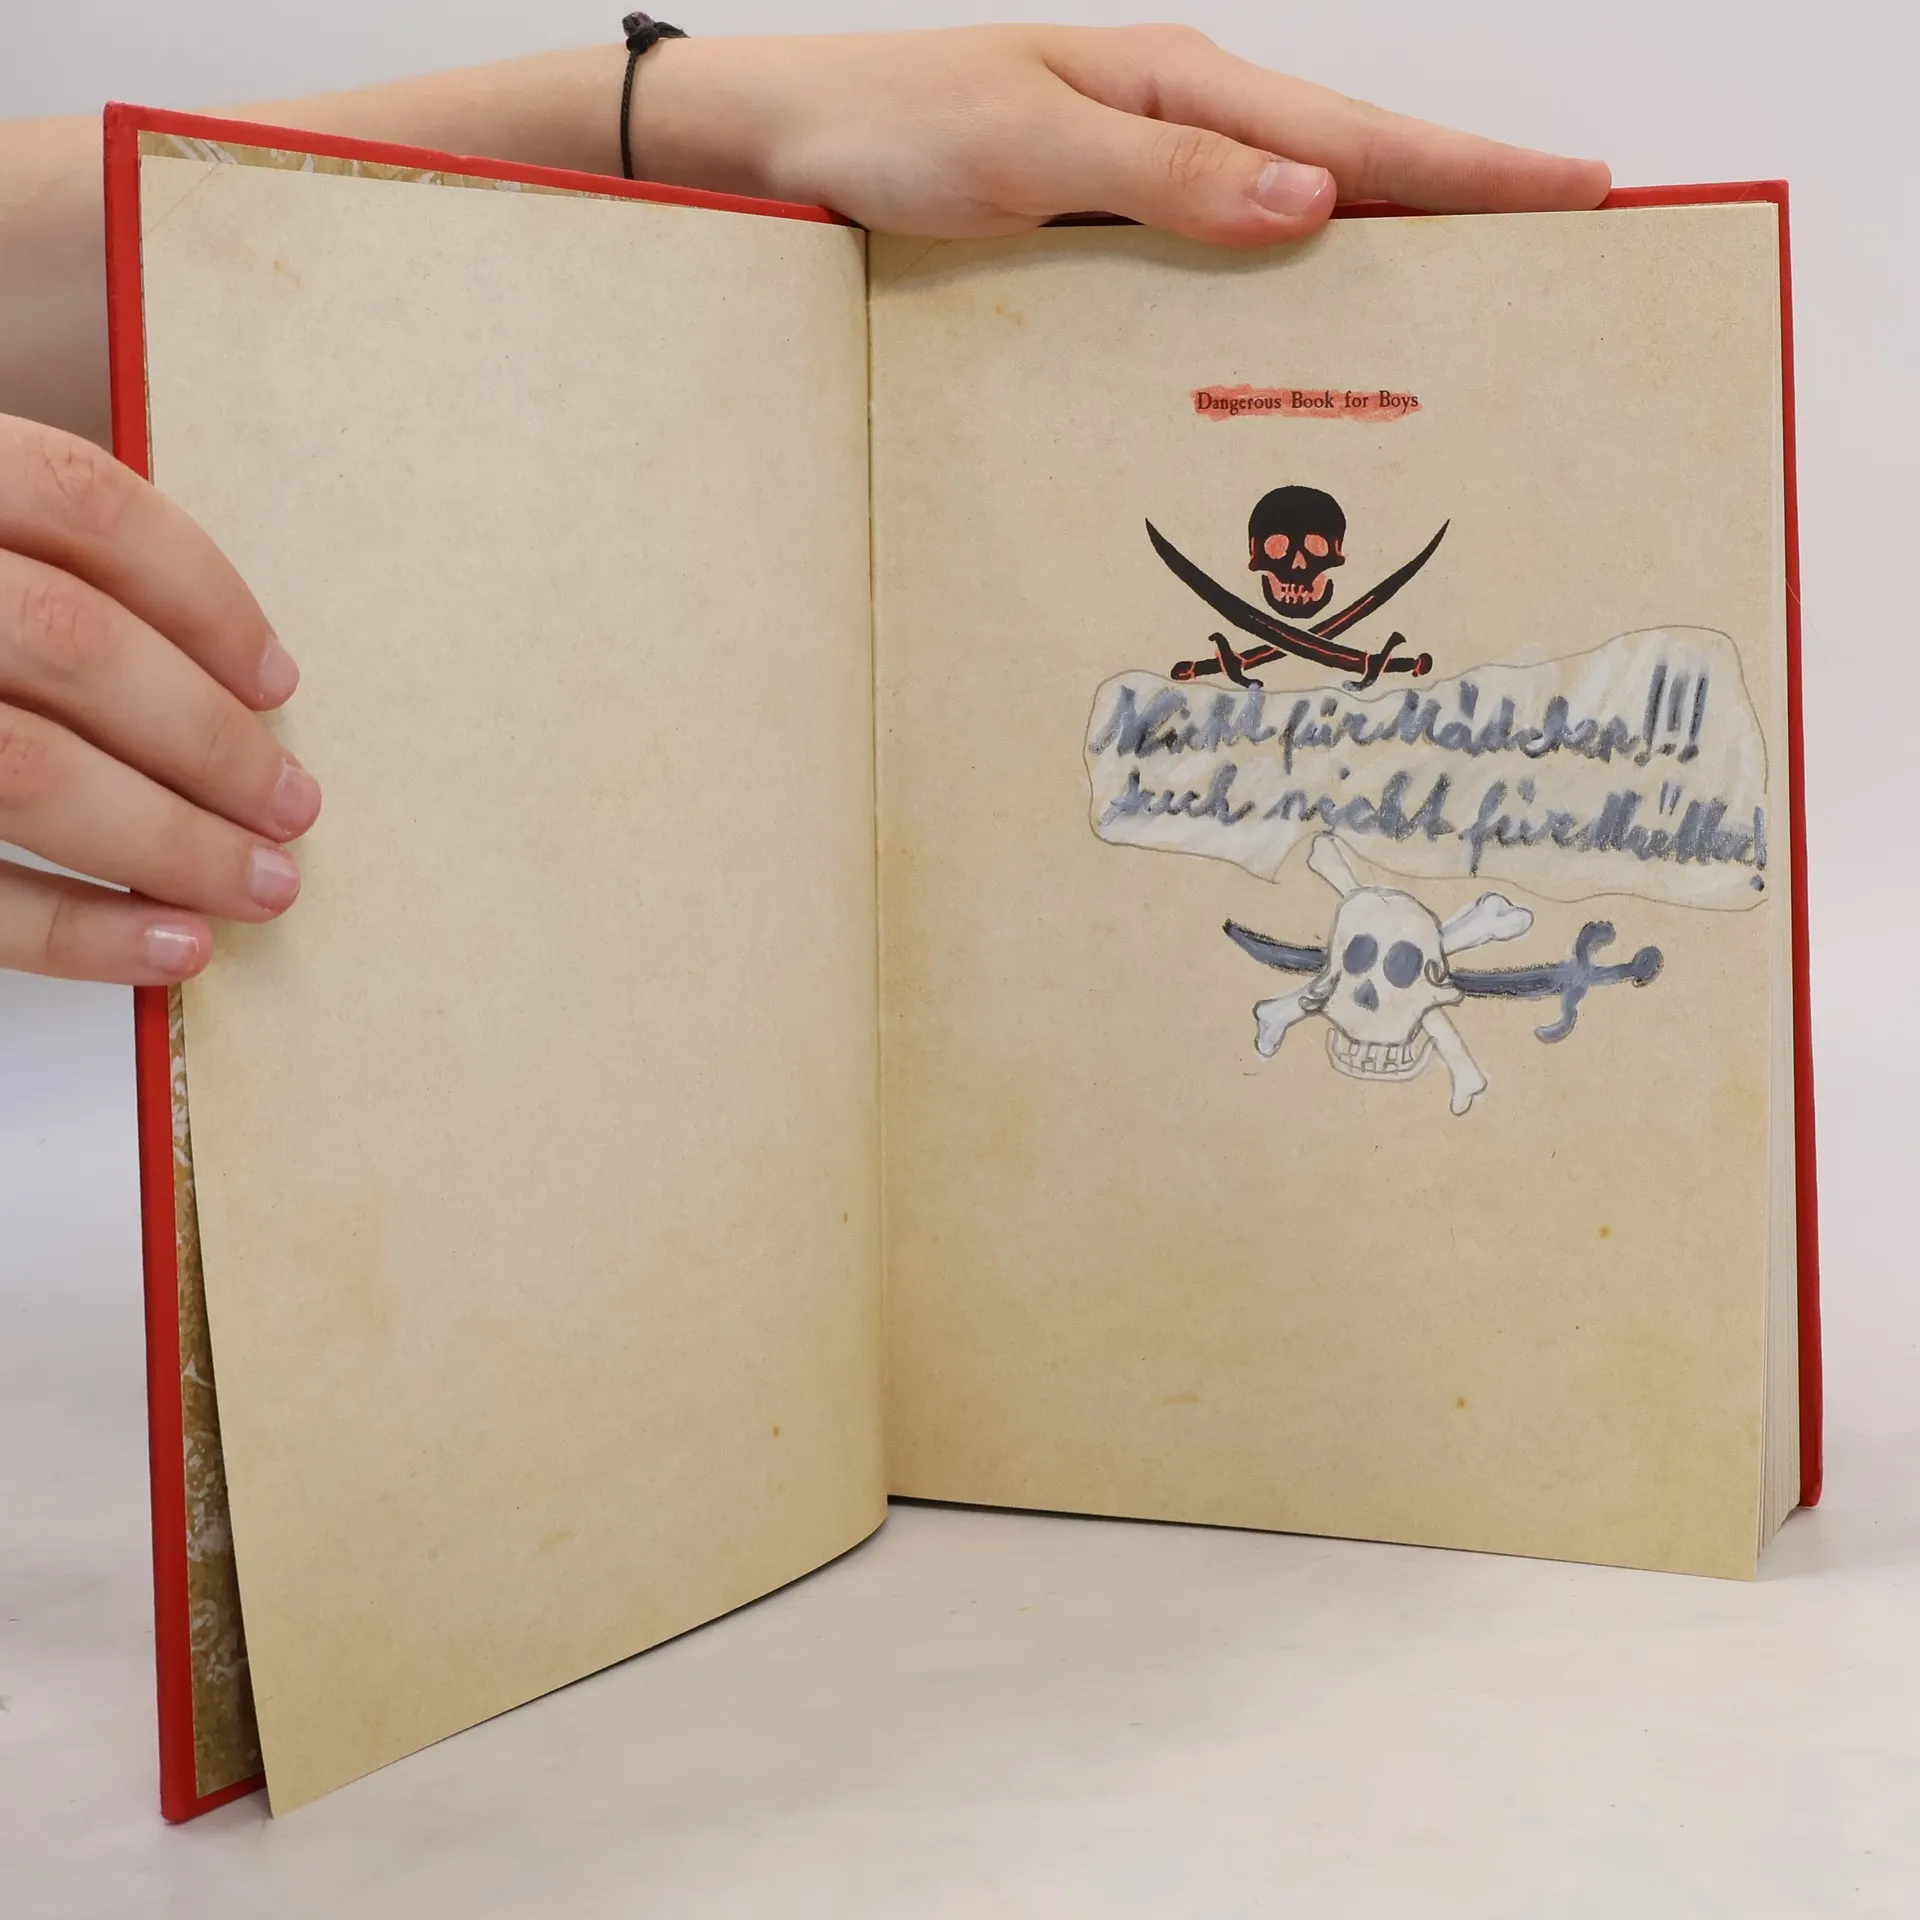 Dangerous Book for Boys
Nicht für Mädchen!!!
Auch nicht für Mütter!